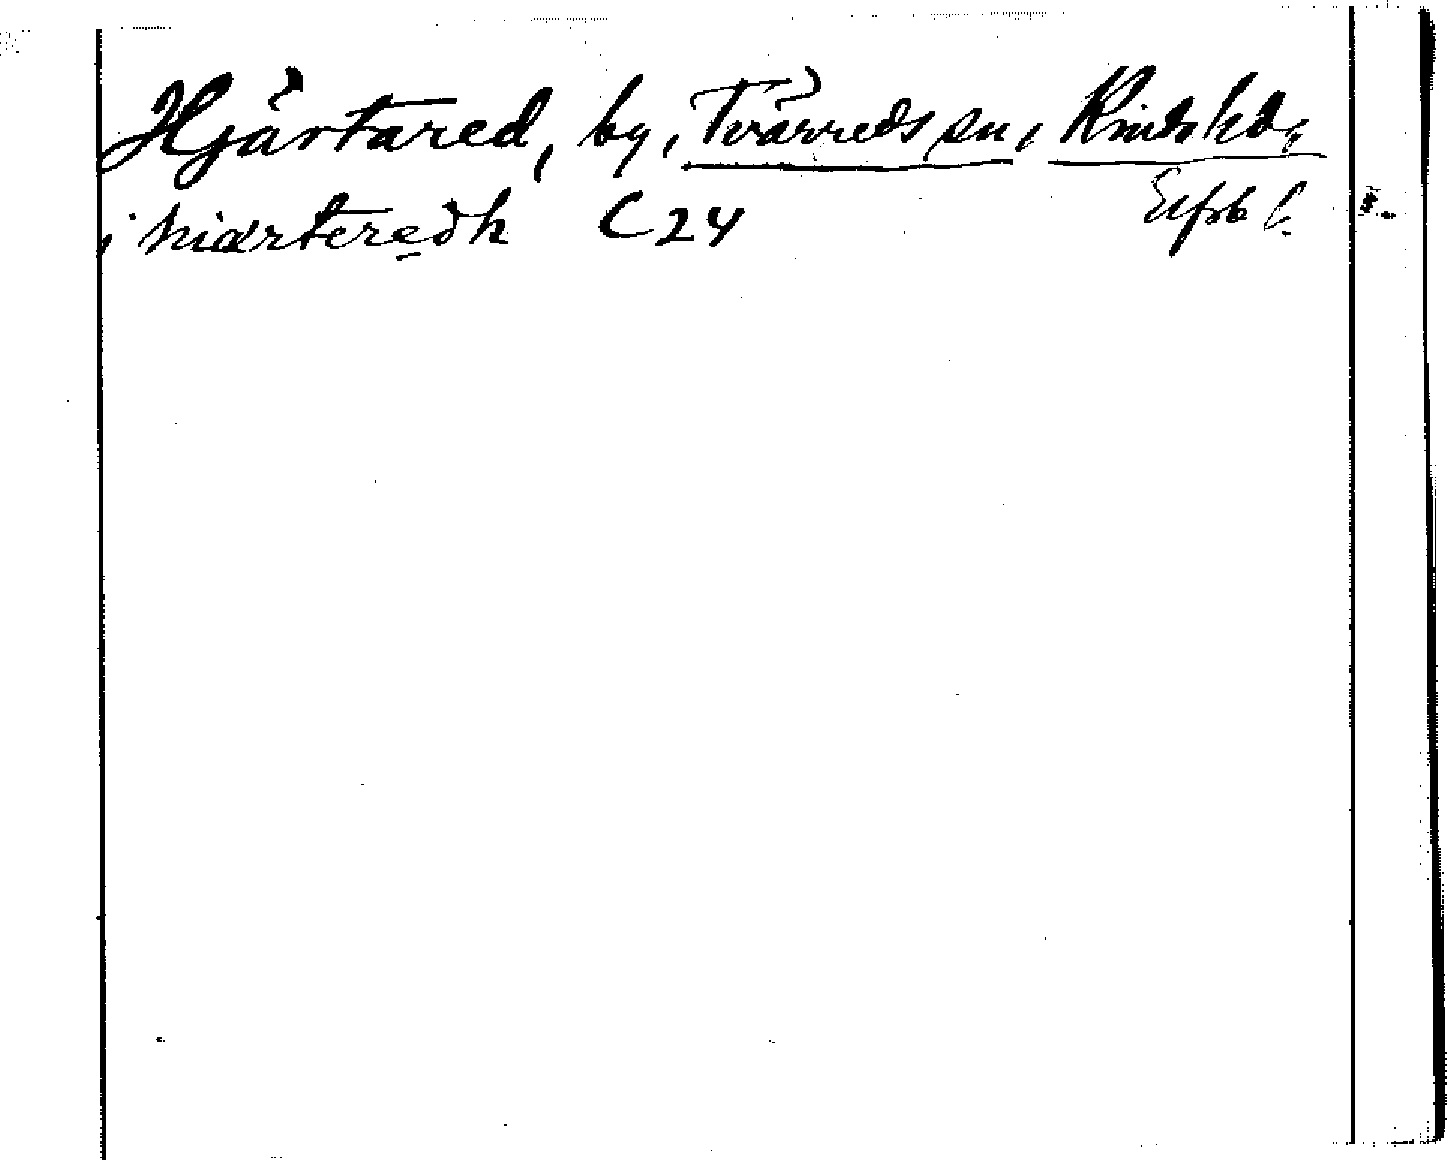 Hjärtared, by, Tvärreds sn, Kinds hd,
Älfsb l.
i hiærteredh C 24